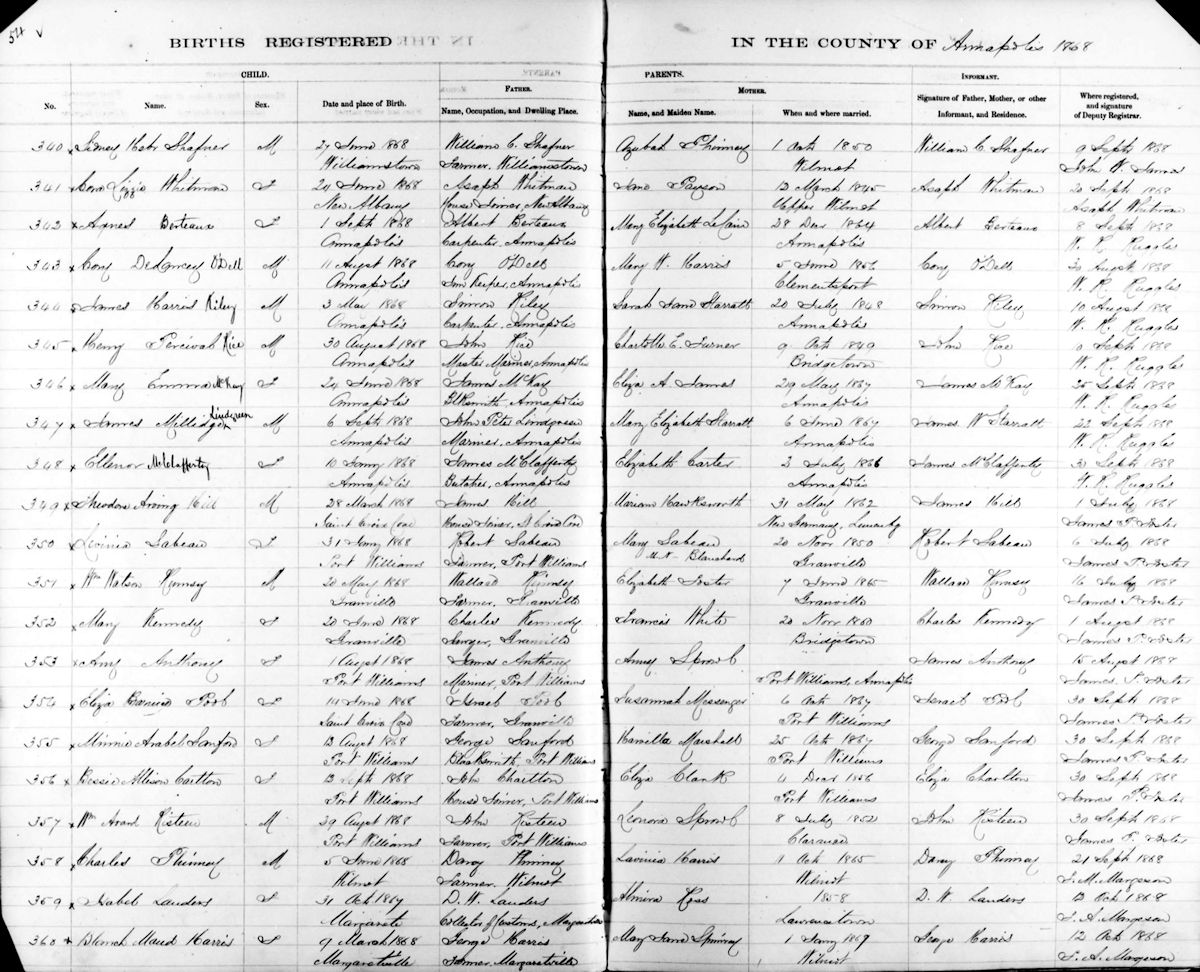 574 V
BIRTHS REGISTERED IN THE COUNTY OF Annapolis 1868
CHILD. PARENTS. INFORMANT.
FATHER. MOTHER.
No. Name. Sex. Date and place of Birth. Name, Occupation, and Dwelling Place. Name, and Maiden Name. When and where married. Signature of Father, Mother, or other Informant, and Residence. Where registered, and signature of Deputy Registrar.
340 x Sidney Shafner M 27 June 1868 William C. Shafner Azubah Phinney 1 Oct 1850 William C Shafner 9 Sept 1868
Williamstown Farmer, Williamstown Wilmot John W. James
341 x Cora Lizzie Whitman F 24 June 1868 Asaph Whitman Jane Payson 13 March 1845 Asaph Whitman 20 Sept 1868
New Albany House Joiner, New Albany Upper Wilmot Asaph Whitman
342 x Agnes Berteaux F 1 Sept 1868 Albert Berteaux Mary Elizabeth LeCain 28 Decr 1864 Albert Berteaux 8 Sept 1868
Annapolis Carpenter, Annapolis Annapolis W. R. Ruggles
343 x Cory DeLancey O'Dell M 11 Augst 1868 Cory O'Dell Mary W. Harris 5 June 1856 Cory O'Dell 20 Augst 1868
Annapolis Inn Keeper, Annapolis Clementsport W. R. Ruggles
344 x James Harris Riley M 3 May 1868 Simon Riley Sarah Jane Starratt 20 July 1848 Simon Riley 10 August 1868
Annapolis Carpenter, Annapolis Annapolis W. R. Ruggles
345 x Henry Percival Rice M 30 August 1868 John Rice Charlotte E. Turner 9 Oct 1849 John Rice Sept 1868
Annapolis Master Mariner, Annapolis Bridgetown W. R. Ruggles
346 x Mary Emma McKay F 24 June 1868 James McKay Eliza A. James 29 May 1867 James McKay 25 Sept 1868
Annapolis Blksmith, Annapolis Annapolis W. R. Ruggles
347 x James Millidge Lindgreen M 6 Sept 1868 John Peter Lindgreen Mary Elizabeth Starratt 6 June 1867 James W Starratt 22 Sept 1868
Annapolis Mariner, Annapolis Annapolis W. R. Ruggles
348 x Ellenor McClafferty F 10 Janry 1868 James McClafferty Elizabeth Carter 2 July 1866 James McClafferty Sept 1868
Annapolis Butcher, Annapolis Annapolis W. R. Ruggles
349 x Theodore Irving Hill M 28 March 1868 James Hill Mariam Hawksworth 31 May 1862 James Hill 1 July 1868
Saint Croix Cove House Joiner, St Croix Cove New Germany, Lunenbg James P. Foster
350 x Levinia Sabeau F 31 Janry 1868 Robert Sabeau Mary Sabeau 20 Novr 1850 Robert Sabeau 6 July 1868
Port Williams Farmer, Port Williams M.N - Blanchard Granville James P. Foster
351 x Wm Watson Kimsey M 20 May 1868 Wallace Kimsey Elizabeth Foster 7 June 1865 Wallace Kimsey 16 July 1868
Granville Farmer, Granville Granville James P. Foster
352 x Mary Kennedy F 20 June 1868 Charles Kennedy Frances White 20 Novr 1860 Charles Kennedy 1 August 1868
Granville Sawyer, Granville Bridgetown James P. Foster
353 x Amy Anthony F 1 Augst 1868 James Anthony Amey Sprowl James Anthony 15 Augst 1868
Port Williams Mariner, Port Williams Port Williams, Annapolis James P. Foster
354 x Eliza Poole F 14 June 1868 Israel Poole Susannah Messenger 6 Oct 1867 Israel Poole 30 Sept 1868
Saint Croix Cove Farmer, Granville Port Williams James P. Foster
355 x Minnie Arabel Sanford F 13 Augst 1868 George Sanford Hamilla Marshall 25 Oct 1867 George Sanford 30 Sept 1868
Port Williams Blacksmith, Port Williams Port Williams James P. Foster
356 x Bessie Allison Carlton F 13 Sept 1868 John Charlton Eliza Clark 11 Decr 1856 Eliza Charlton 30 Sept 1868
Port Williams House Joiner, Port Williams Port Williams James P. Foster
357 x Wm Avard Risteen M 29 Augst 1868 John Risteen Leonora Sprowl 8 July 1852 John Risteen 30 Sept 1868
Port Williams Farmer, Port Williams Clarence James P. Foster
358 x Charles Phinney M 5 June 1868 Darcy Phinney Lavinia Harris 11 Oct 1865 Darcy Phinney 21 Sept 1868
Wilmot Farmer, Wilmot Wilmot S. M. Margeson
359 x Isabel Landers F 31 Oct 1867 D. W. Landers Almira Ross 1858 D. W. Landers 13 Oct 1868
Margarets Collector of Customs, Margaretsville Lawrencetown S. A. Margeson
360 x Blanch Maud Harris F 9 March 1868 George Harris Mary Jane Spinney 1 Janry 1867 George Harris 12 Oct 1868
Margaretville Farmer, Margaretville Wilmot S. A. Margeson